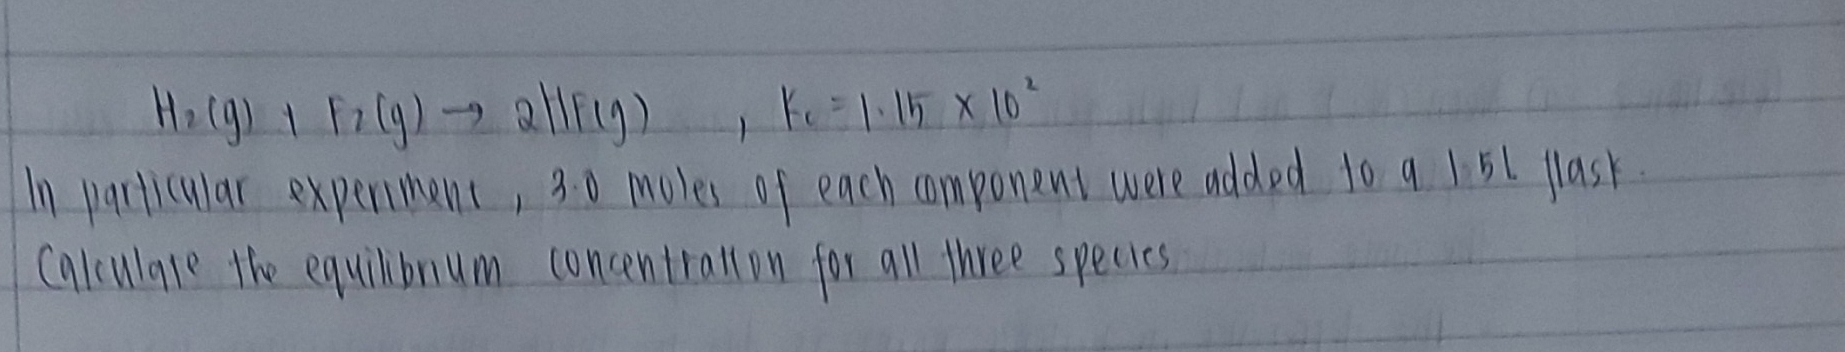 H₂(g) + F₂(g) → 2HF(g) , Kc = 1.15 × 10²
In particular experiment, 3.0 moles of each component were added to a 1.5L flask.
Calculate the equilibrium concentration for all three species